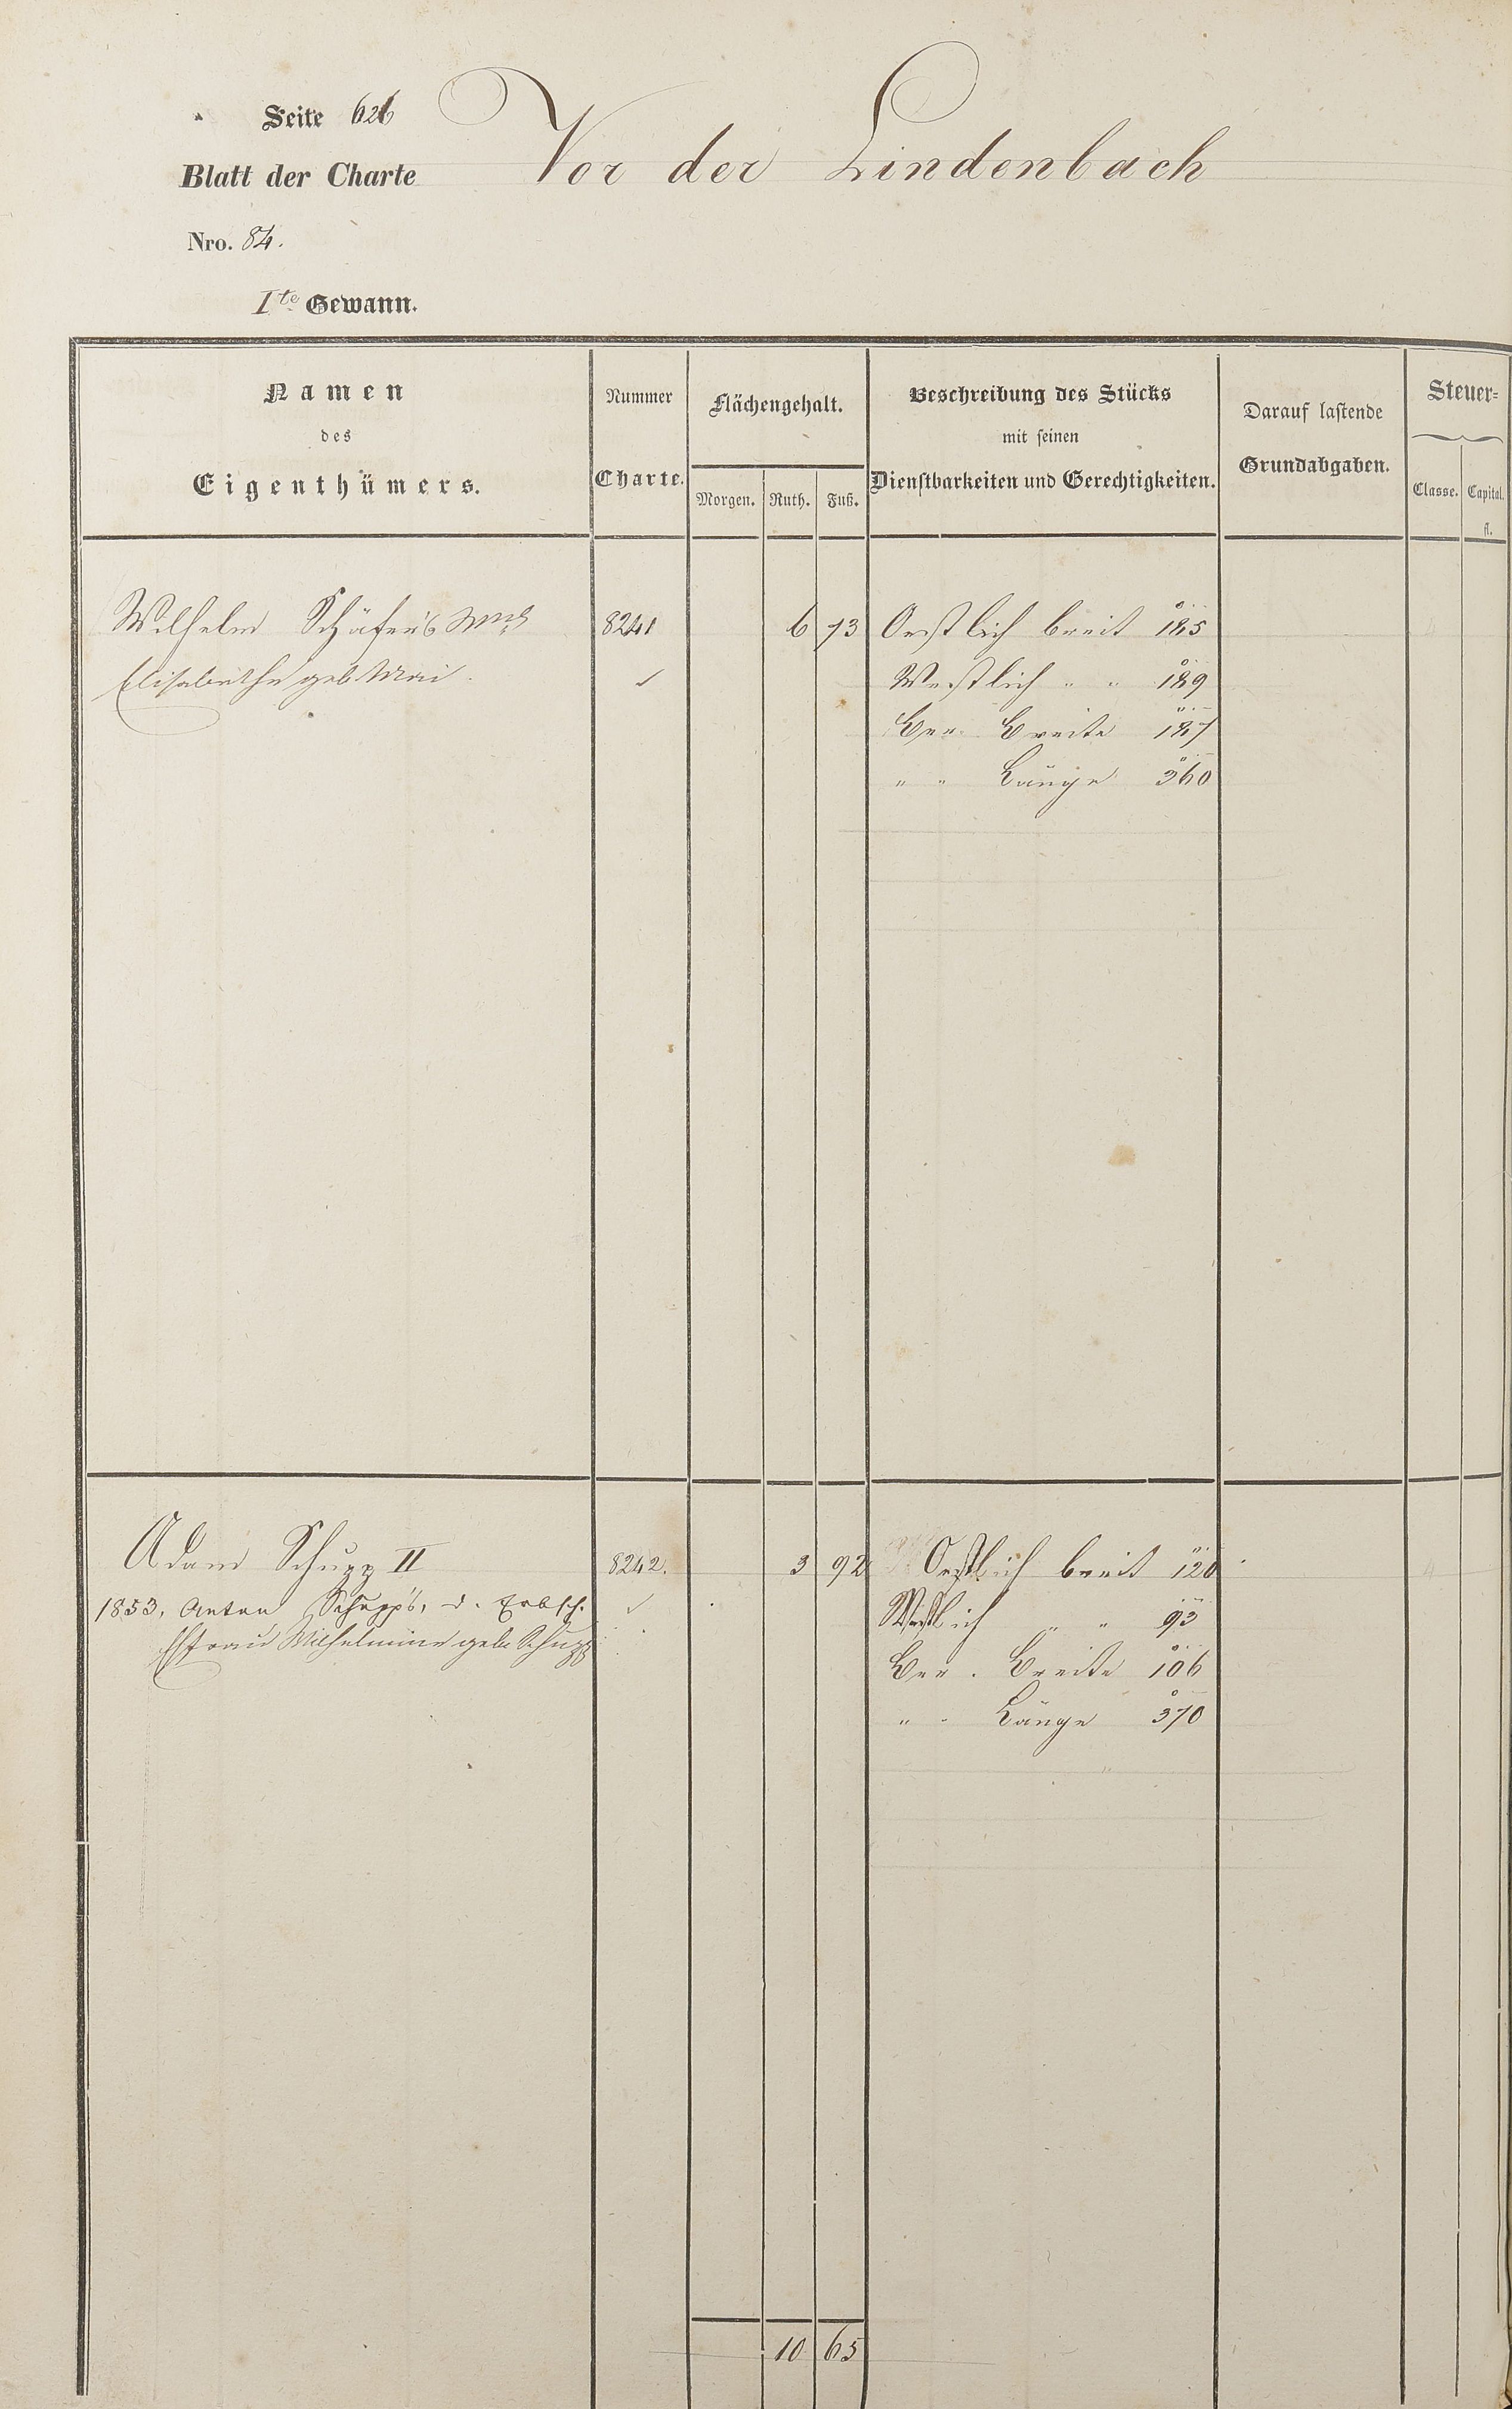 Seite 626
Vor der Lindenbach
Blatt der Charte
Nro. 84.
I.te Gewann.
Namen
des
Eigenthümers.
Nummer
Charte.
Flächengehalt.
Morgen. Ruth. Fuß.
Beschreibung des Stücks
mit seinen
Dienstbarkeiten und Gerechtigkeiten.
Darauf lastende
Grundabgaben.
Steuer=
Classe. Capital.
fl.
Wilhelm Schäfer's 8241 6 73 Oestlich breit 185
Elisabethe geb Mai. Westlich " " 189
Breite 187
" " Länge 360
Adam Schupp II 8242. 3 92 Oestlich breit 120
1853, Anton Schupp's, d. Erbsch. Westlich " " 93
Ehfrau Wilhelmine geb. Schupp Breite 106
" " Länge 370
10 65